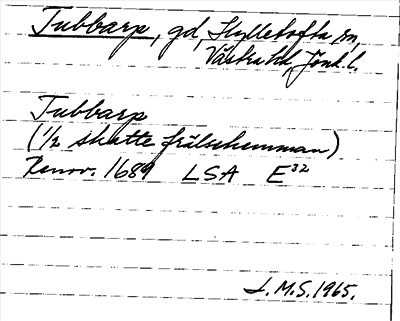 Tubbarp, gd, Hylletofta sn,
Västra hd, Jönk. l.
Tubbarp
(1/2 skatte frälsehemman)
Renov. 1689 LSA E32
L.M.S. 1965.